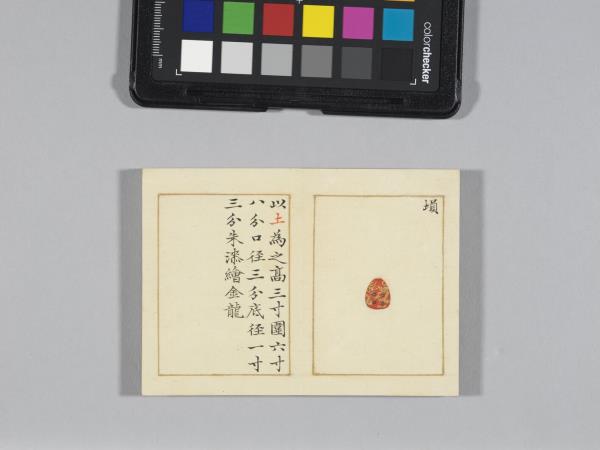 colorchecker
mm
塤
以土為之高三寸圍六寸
八分口径三分底径一寸
三分朱漆繪金龍